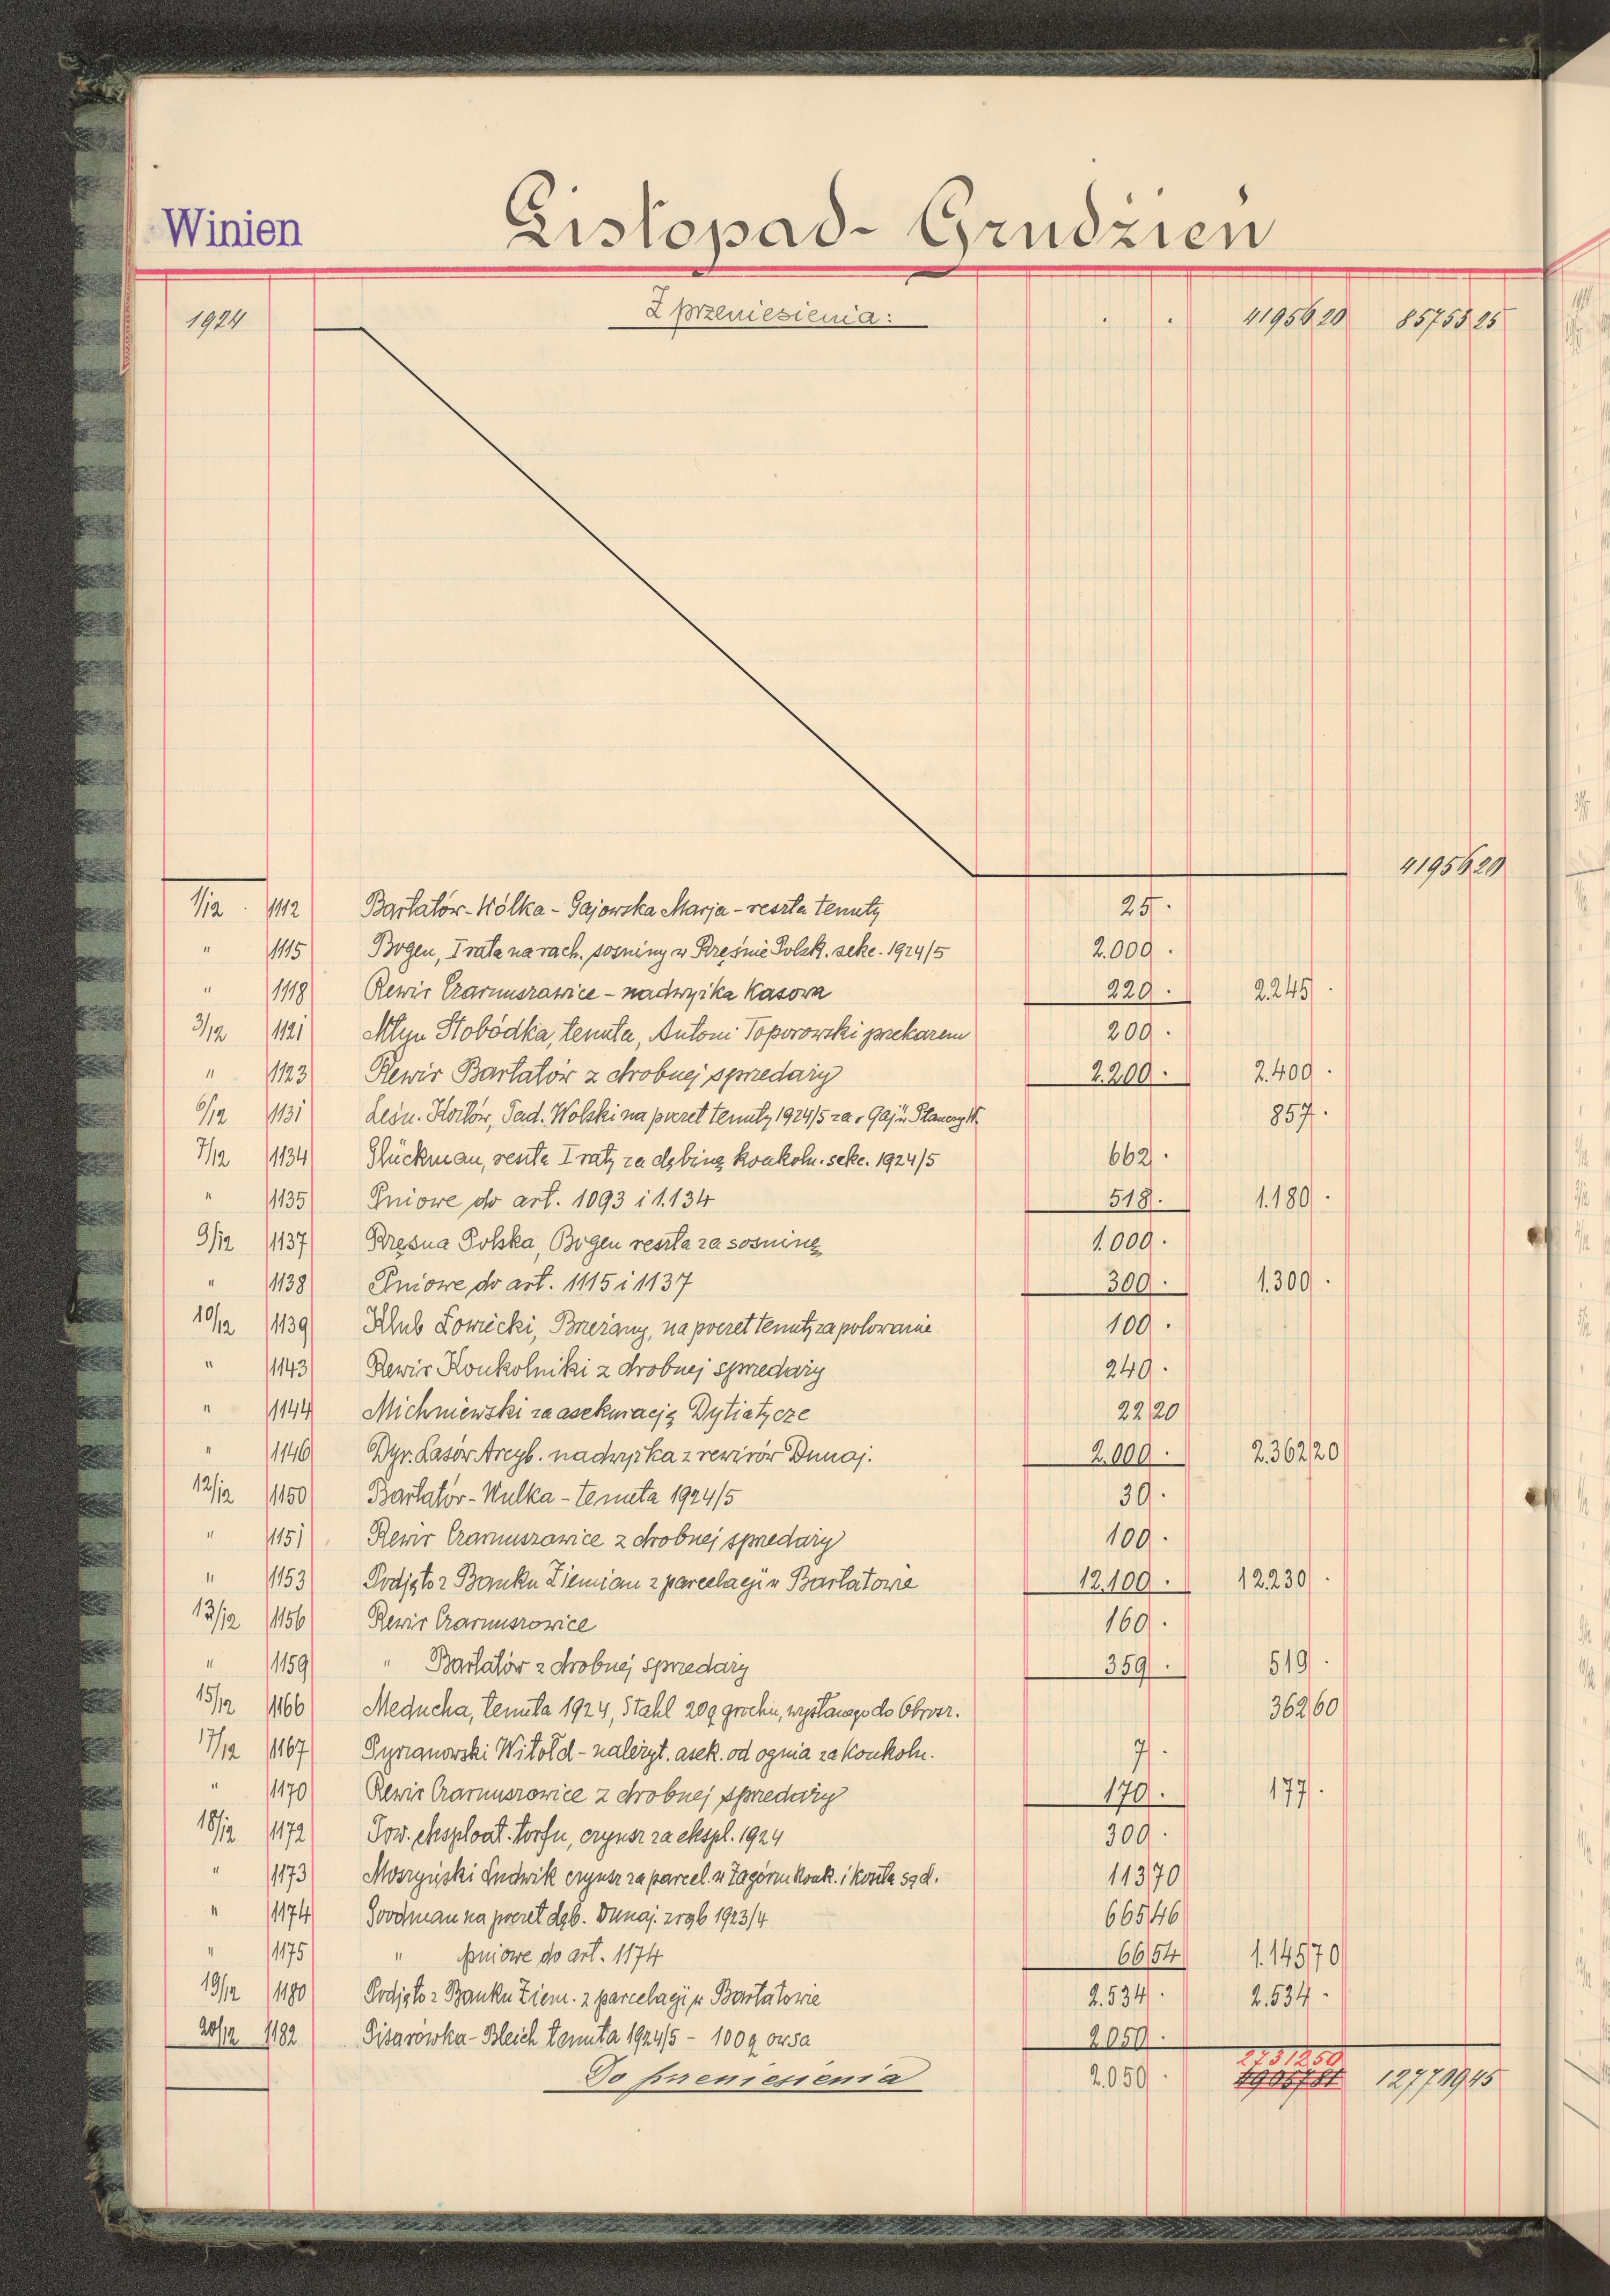 Winien
Listopad - Grudzień
1924 Z przeniesienia: . . 41956 20 85753 25
41956 20
1/12 1112 Bartatów-Wólka - Gajowska Marja - reszta tenuty 25 .
" 1115 Bogen, I rata na rach. sosniny w Rzęśnie Polsk. sekc. 1924/5 2.000 .
" 1118 Rewir Czarnuszawice - nadwyżka Kasowa 220 . 2.245 .
3/12 1121 Młyn Słobódka, tenuta, Antoni Toporowski przekazem 200 .
" 1123 Rewir Bartatów z drobnej sprzedaży 2.200 . 2.400 .
6/12 1131 Leśn. Kozłów, Tad. Wolski na poczet tenuty 1924/5 za "Gaj" w 857 .
7/12 1134 Glückman, reszta I raty za dębinę konkoln. sekc. 1924/5 662 .
" 1135 Pniowe do art. 1093 i 1.134 518 . 1.180 .
9/12 1137 Rzęsna Polska, Bogen reszta za sosninę 1.000 .
" 1138 Pniowe do art. 1115 i 1137 300 . 1.300 .
10/12 1139 Klub Łowiecki, Brzeżany, na poczet tenuty za polowanie 100 .
" 1143 Rewir Konkolniki z drobnej sprzedaży 240 .
" 1144 Michniewski za asekurację Dytiatycze 22 20
" 1146 Dyr. Lasów Arcyb. nadwyżka z rewirów Dunaj. 2.000 . 2.362 20
12/12 1150 Bartatów-Wulka - tenuta 1924/5 30 .
" 1151 Rewir Czarnuszawice z drobnej sprzedaży 100 .
" 1153 Podjęto z Banku Ziemian z parcelacji w Bartatowie 12.100 . 12.230 .
13/12 1156 Rewir Czarnuszowice 160 .
" 1159 " Bartatów z drobnej sprzedaży 359 . 519 .
15/12 1166 Meducha, tenuta 1924, Stahl 20 q grochu, wysłanego do Obrosz. 362 60
17/12 1167 Pyrzanowski Witold - należyt. asek. od ognia za Konkoln. 7 .
" 1170 Rewir Czarnuszowice z drobnej sprzedaży 170 . 177 .
18/12 1172 Tow. eksploat. torfu, czynsz za ekspl. 1924 300 .
" 1173 Moszyński Ludwik czynsz za parcel. w Zagórzu konk. i koszta sąd. 113 70
" 1174 Goodman na poczet dęb. Dunaj. zrąb 1923/4 665 46
" 1175 " pniowe do art. 1174 66 54 1.145 70
19/12 1180 Podjęto z Banku Ziem. z parcelacji w Bartatowie 2.534 . 2.534 .
20/12 1182 Pisarówka - Bleich tenuta 1924/5 - 100 q owsa 2.050 .
27312 50
Do przeniesienia 2.050 . 127709 45